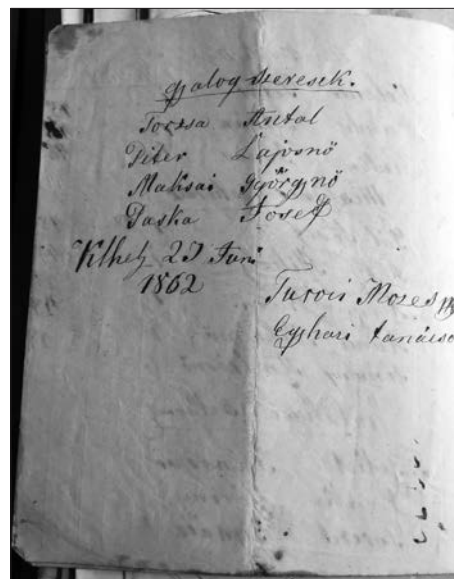 gyalog szeresek.
Torzsa Antal
Péter Lajosnö
Maksai Györgynö
Daska Josef
Klhely 23 Juni
1862
Turóis Moses
Egyhazi tanácso